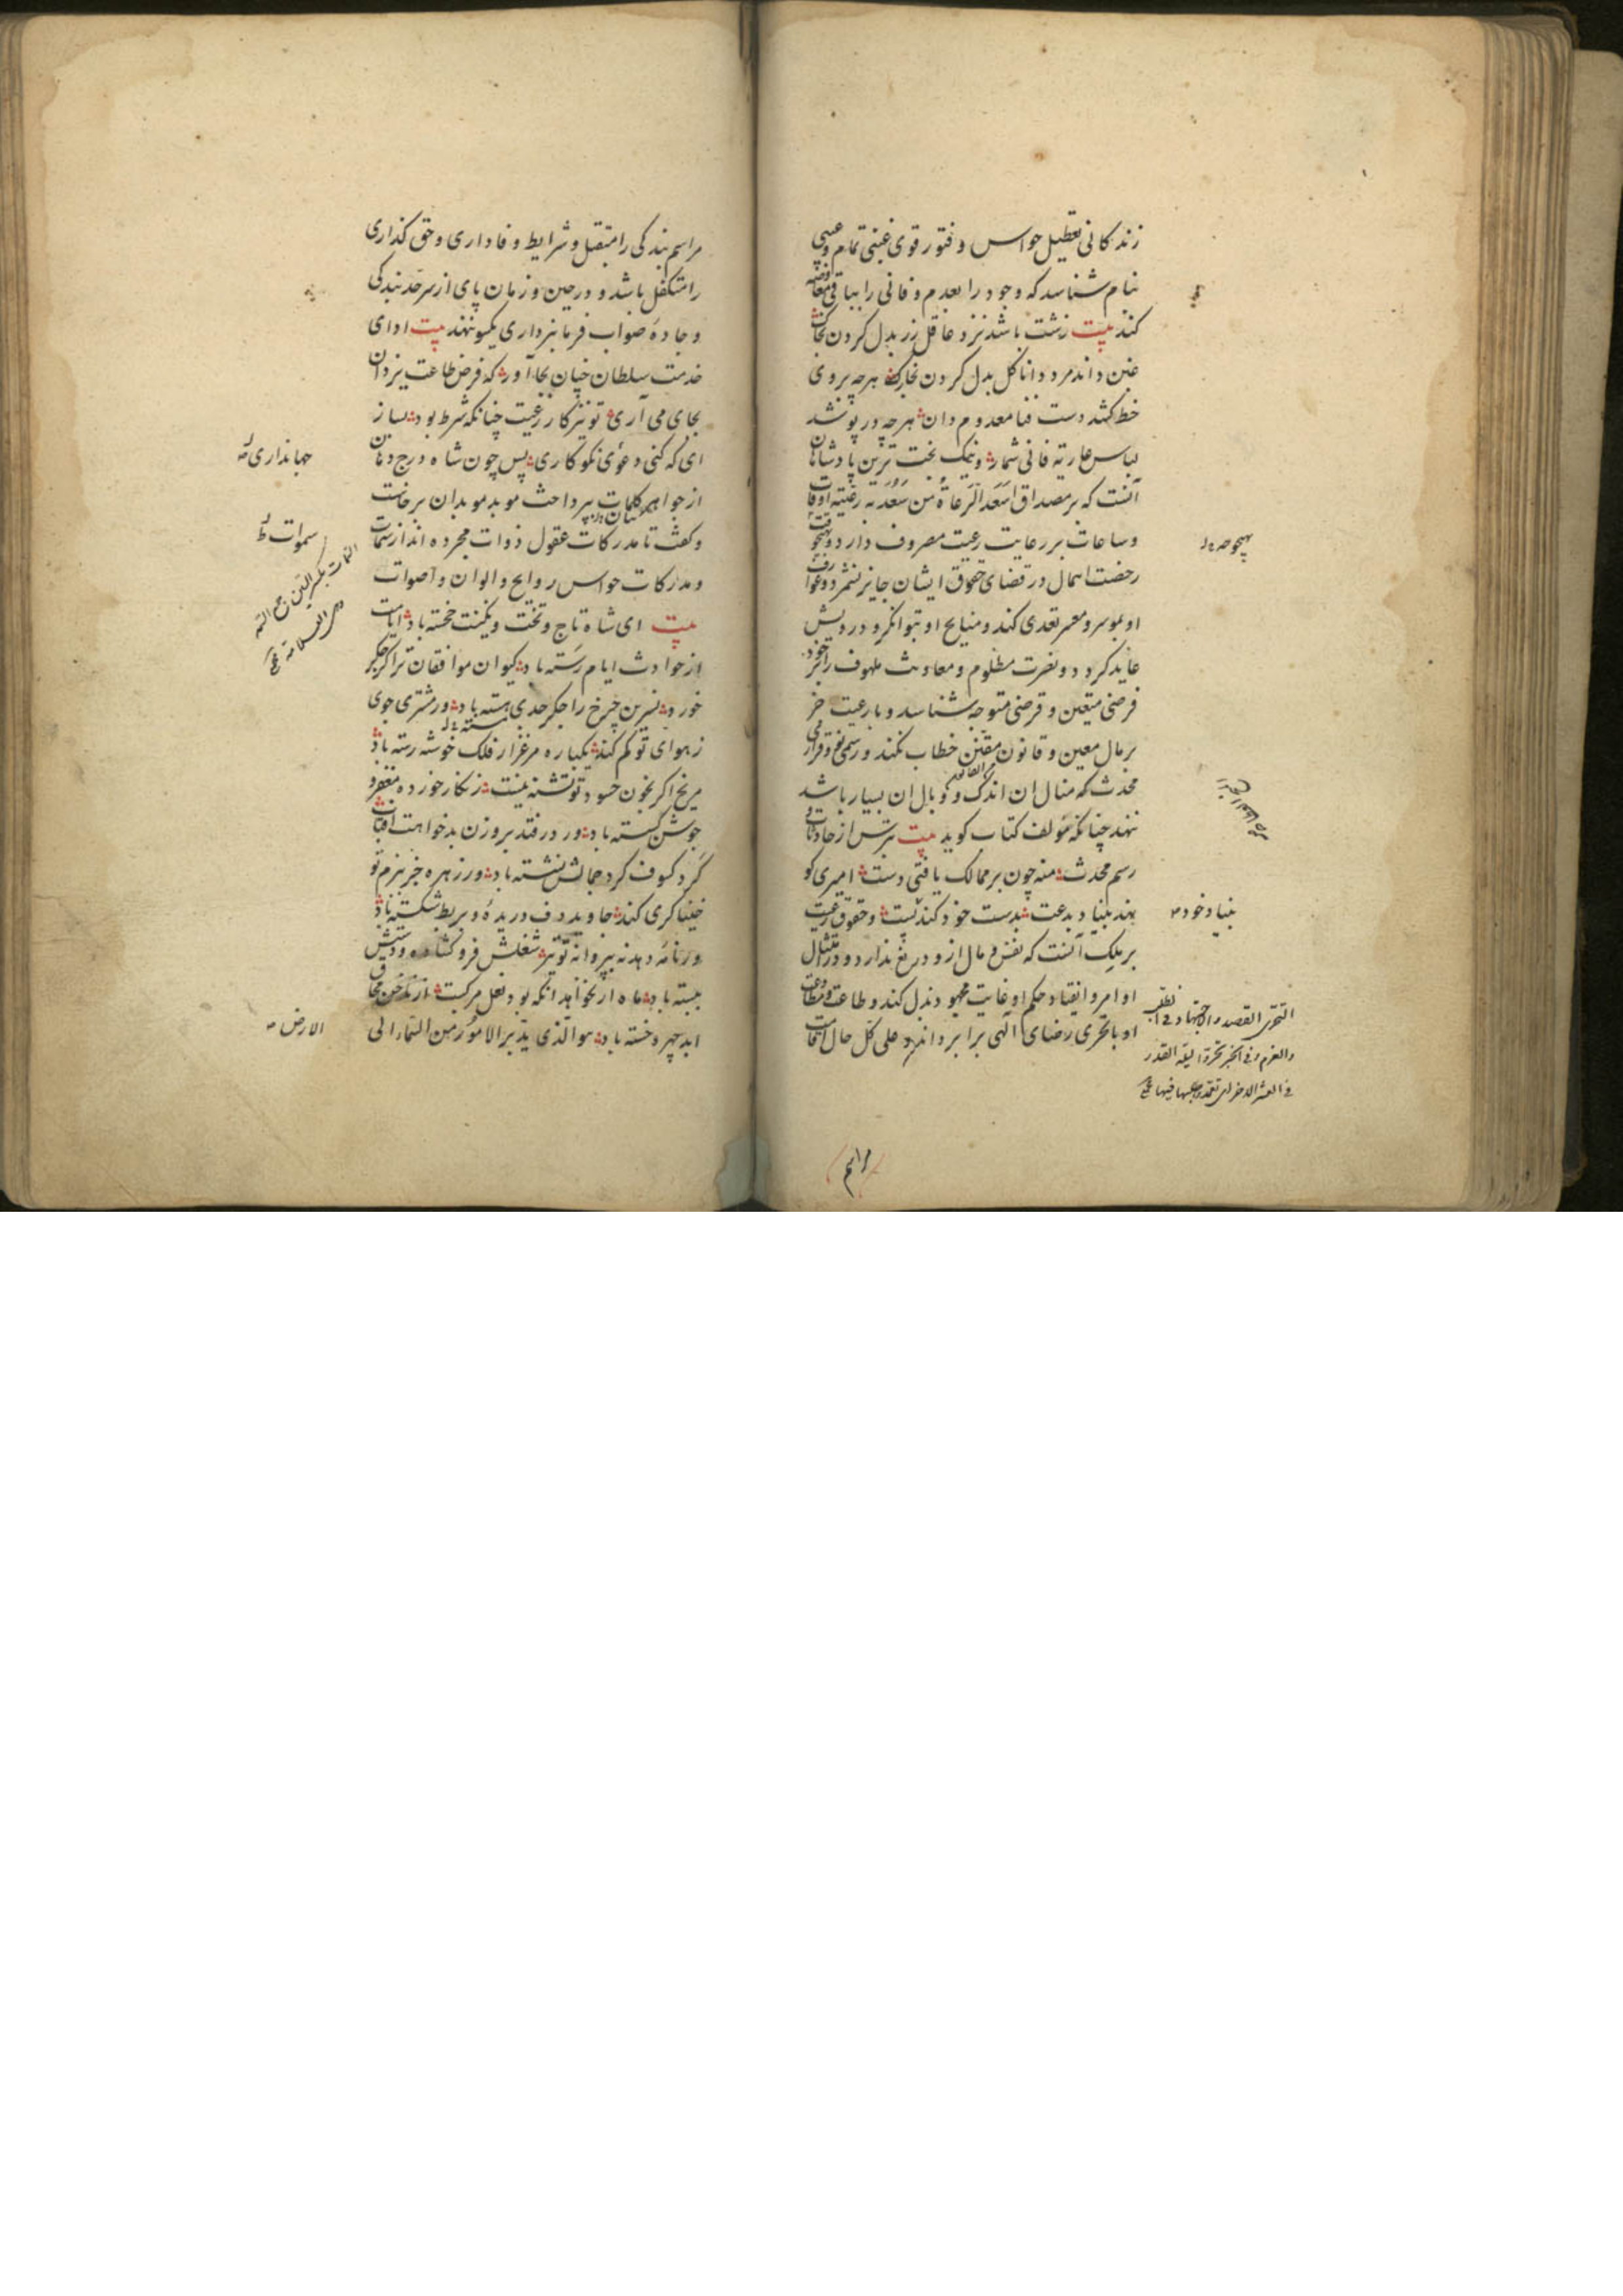 زندگانی تعطیل حواس و فتور قوی غبنی تمام و عیبی
بنام شناسد که وجود را بعدم و فانی را بباقی معاوضه
کند بیت زشت باشد نزد عاقل زر بدل کردن بخاک
غبن داند مرد دانا گل بدل کردن بخار هرچه بروی
خط کشد دست فنا معدوم دان هرچه در پوشد
لباس عاریه فانی شمار و نیک بخت ترین پادشاهان
آنست که بر مصداق اسعد الرعاة من سعد به رعیته اوقات
و ساعات بر رعایت رعیت مصروف دارد و بهیچوقت
رخصت اهمال در قضای حقوق ایشان جایز نشمرد
او بموسر و معسر تعدی کند و منایح او بتوانگر و درویش
عاید گردد و نصرت مظلوم و معاونت ملهوف را بر خود
فرضی متعین و قرضی متوجه شناسد و با رعیت جز
بر مال معین و قانون مقنن خطاب نکند و رسمی نو و قراری
محدث که منال ان اندک و وبال ان بسیار باشد
ننهد چنانکه مؤلف کتاب کوید بیت بترس از حادثات و
رسم محدث منه چون بر ممالک یافتی دست امیری کو
نهد بنیاد بدعت بدست خود کند پست و حقوق رعیت
بر ملک آنست که نفس و مال ازو دریغ ندارد و در امتثال
اوامر و انقیاد حکم او غایت مجهود بذل کند و طاعت و مطاوعت
او با تحری رضای الهی برابر داند و علی کل حال اقامت
بنیاد خود
التحری القصد و الاجتهاد فی الطلب
والعزم و فی الخبر تحروا لیلة القدر
فی العشر الاخر ای تعمدوا طلبها فیها
مراسم
مراسم بندگی را متقبل و شرایط وفاداری و حق گذاری
را متکفل باشد و در حین و زمان پای از سرحد بندگی
و جادهٔ صواب فرمانبرداری یکسو ننهد بیت ادای
خدمت سلطان چنان بجا آور که فرض طاعت یزدان
بجای می آری تو نیز کار رعیت چنانکه شرط بود بساز
ای که کنی دعوی نکوکاری پس چون شاه درج دهان
از جواهر کلمات بپرداخت موبد موبدان برخاست
و گفت تا مدرکات عقول ذوات مجرده اند از سمات
و مدرکات حواس روایح و الوان و اصوات
بیت ای شاه تاج و تخت و نگینت خجسته باد ایامت
از حوادث ایام رسته باد کیوان موافقان ترا گر جگر
خورد نسرین چرخ را جگر جدی بسته باد ور مشتری جوی
ز هوای تو کم کند یکباره مرغزار فلک خوشه رسته باد
مریخ اگر بخون حسود تو تشنه نیست زنگار خورده مغفر و
جوشن گسسته باد ور در فتد بروزن بدخواهت آفتاب
گرد کسوف گرد جمالش نشسته باد ور زهره جز ببزم تو
خنیاگری کند جاوید دف دریده و بربط شکسته باد
ور نامه دهد نه بپروانه تو تیر شغلش فرو گشاده و دستش
ببسته باد ماه ار نخواهد انکه بود نعل مرکبت از ناخن محاق
ابد چهره خسته باد هو الذی یدبر الامور من السماء الی
جهانداری
سموات
السمات بکسر السین جمع السمه
و هی العلامة
الارض